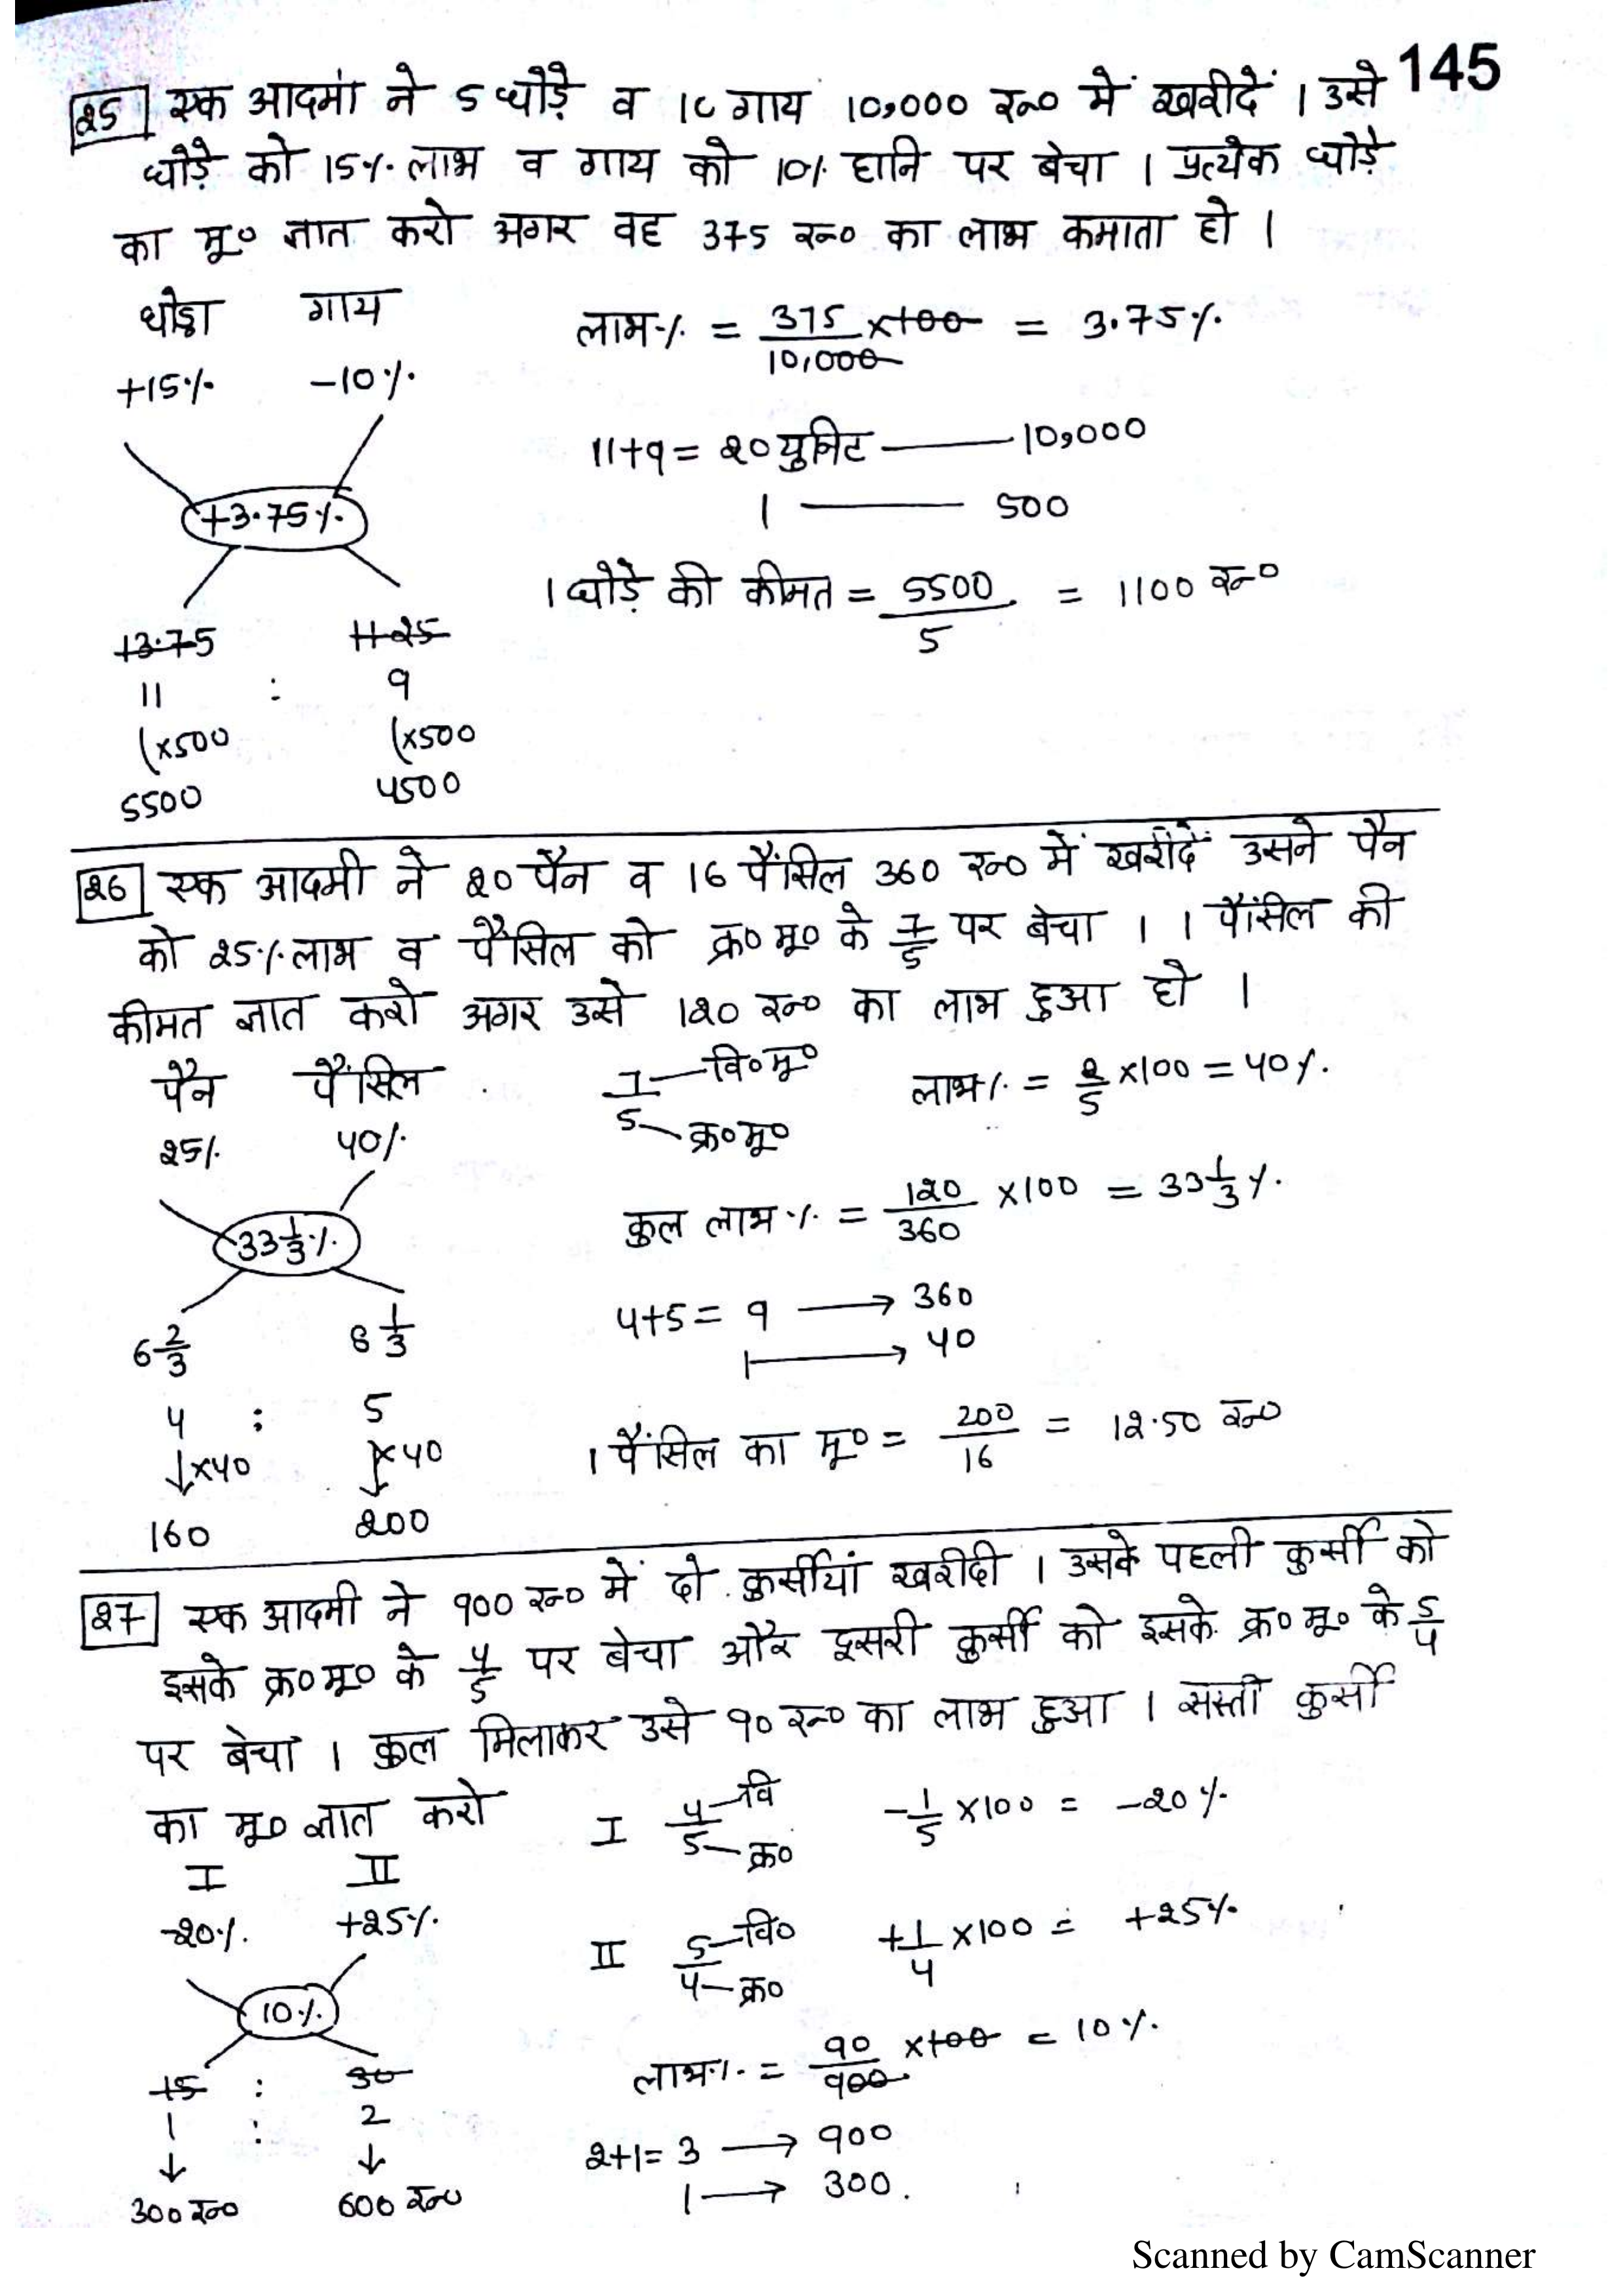 145
25 एक आदमी ने 5 घोड़े व 10 गाय 10,000 रू० में खरीदें । उसे
घोड़े को 15% लाभ व गाय को 10% हानि पर बेचा । प्रत्येक घोड़े
का मू० ज्ञात करो अगर वह 375 रू० का लाभ कमाता हो ।
घोड़ा गाय
+15% -10%
+3.75%
13.75 11.25
11 : 9
(×500 (×500
5500 4500
लाभ% = 375/10,000 ×100 = 3.75%
11+9 = 20 युनिट — 10,000
1 — 500
1 घोड़े की कीमत = 5500/5 = 1100 रू०
26 एक आदमी ने 20 पैन व 16 पैंसिल 360 रू० में खरीदें उसने पैन
को 25% लाभ व पैंसिल को क्र० मू० के 7/5 पर बेचा । 1 पैंसिल की
कीमत ज्ञात करो अगर उसे 120 रू० का लाभ हुआ हो ।
पैन पैंसिल
25% 40%
33 1/3 %
6 2/3 8 1/3
4 : 5
↓×40 ↓×40
160 200
7 — वि० मू०
5 — क्र० मू०
लाभ% = 2/5 ×100 = 40%.
कुल लाभ% = 120/360 ×100 = 33 1/3 %.
4+5 = 9 → 360
1 → 40
1 पैंसिल का मू० = 200/16 = 12.50 रू०
27 एक आदमी ने 900 रू० में दो कुर्सीयां खरीदी । उसके पहली कुर्सी को
इसके क्र० मू० के 4/5 पर बेचा और दूसरी कुर्सी को इसके क्र० मू० के 5/4
पर बेचा । कुल मिलाकर उसे 90 रू० का लाभ हुआ । सस्ती कुर्सी
का मू० ज्ञात करो
I II
-20%. +25%.
10%.
15 : 30
1 : 2
↓ ↓
300 रू० 600 रू०
I 4 — वि
5 — क्र०
-1/5 ×100 = -20%
II 5 — वि०
4 — क्र०
+1/4 ×100 = +25%
लाभ% = 90/900 ×100 = 10%.
2+1 = 3 → 900
1 → 300.
Scanned by CamScanner